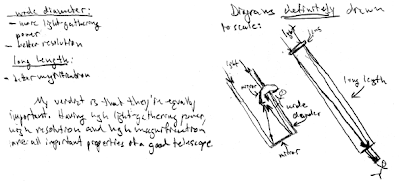 wide diameter:
- more light-gathering
power
- better resolution
long length:
- better magnification
My verdict is that they're equally
important. Having high light-gathering power,
high resolution and high magnification
are all important properties of a good telescope
Diagrams definitely drawn
to scale:
light
lens
long length
light
mirror
wide
diameter
mirror